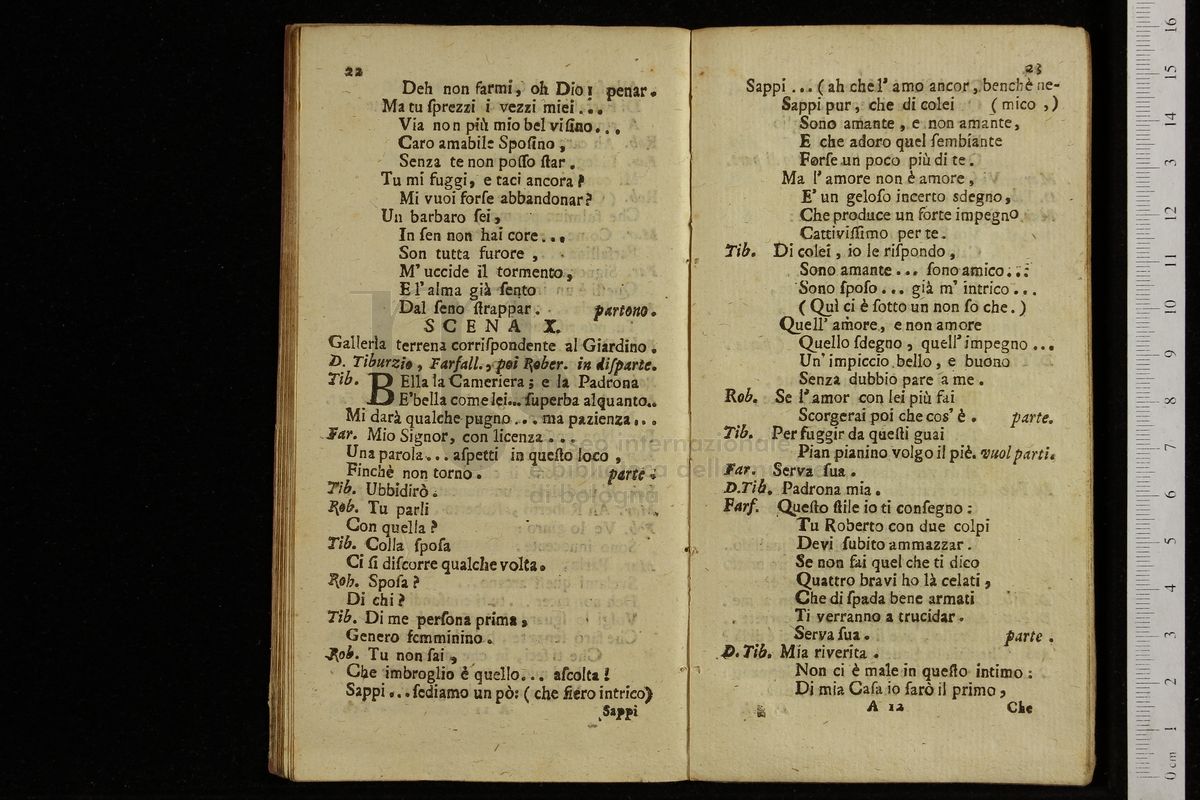 22
Deh non farmi, oh Dio! penar.
Ma tu ſprezzi i vezzi miei...
Via non più mio bel viſino...
Caro amabile Spoſino,
Senza te non poſſo ſtar.
Tu mi fuggi, e taci ancora?
Mi vuoi forſe abbandonar?
Un barbaro ſei,
In ſen non hai core...
Son tutta furore,
M' uccide il tormento,
E l' alma già ſento
Dal ſeno ſtrappar. partono.
SCENA X.
Galleria terrena corriſpondente al Giardino.
D. Tiburzio, Farfall., poi Rober. in diſparte.
Tib. BElla la Cameriera; e la Padrona
E' bella come lei... ſuperba alquanto..
Mi darà qualche pugno... ma pazienza...
Far. Mio Signor, con licenza...
Una parola... aſpetti in queſto loco,
Finchè non torno. parte.
Tib. Ubbidirò.
Rob. Tu parli
Con quella?
Tib. Colla ſpoſa
Ci ſi diſcorre qualche volta.
Rob. Spoſa?
Di chi?
Tib. Di me perſona prima,
Genero femminino.
Rob. Tu non ſai,
Che imbroglio è quello... aſcolta!
Sappi... ſediamo un pò: (che fiero intrico)
Sappi
23
Sappi... (ah che l' amo ancor, benchè ne-
Sappi pur, che di colei (mico,)
Sono amante, e non amante,
E che adoro quel ſembiante
Forſe un poco più di te.
Ma l' amore non è amore,
E' un geloſo incerto sdegno,
Che produce un forte impegno
Cattiviſſimo per te.
Tib. Di colei, io le riſpondo,
Sono amante... ſono amico...
Sono ſpoſo... già m' intrico...
(Quì ci è ſotto un non ſo che.)
Quell' amore, e non amore
Quello ſdegno, quell' impegno...
Un' impiccio bello, e buono
Senza dubbio pare a me.
Rob. Se l' amor con lei più fai
Scorgerai poi che cos' è. parte.
Tib. Per fuggir da queſti guai
Pian pianino volgo il piè. vuol parti.
Far. Serva ſua.
D.Tib. Padrona mia.
Farf. Queſto ſtile io ti conſegno:
Tu Roberto con due colpi
Devi ſubito ammazzar.
Se non fai quel che ti dico
Quattro bravi ho là celati,
Che di ſpada bene armati
Ti verranno a trucidar.
Serva ſua. parte.
D. Tib. Mia riverita.
Non ci è male in queſto intimo:
Di mia Caſa io ſarò il primo,
A 12 Che